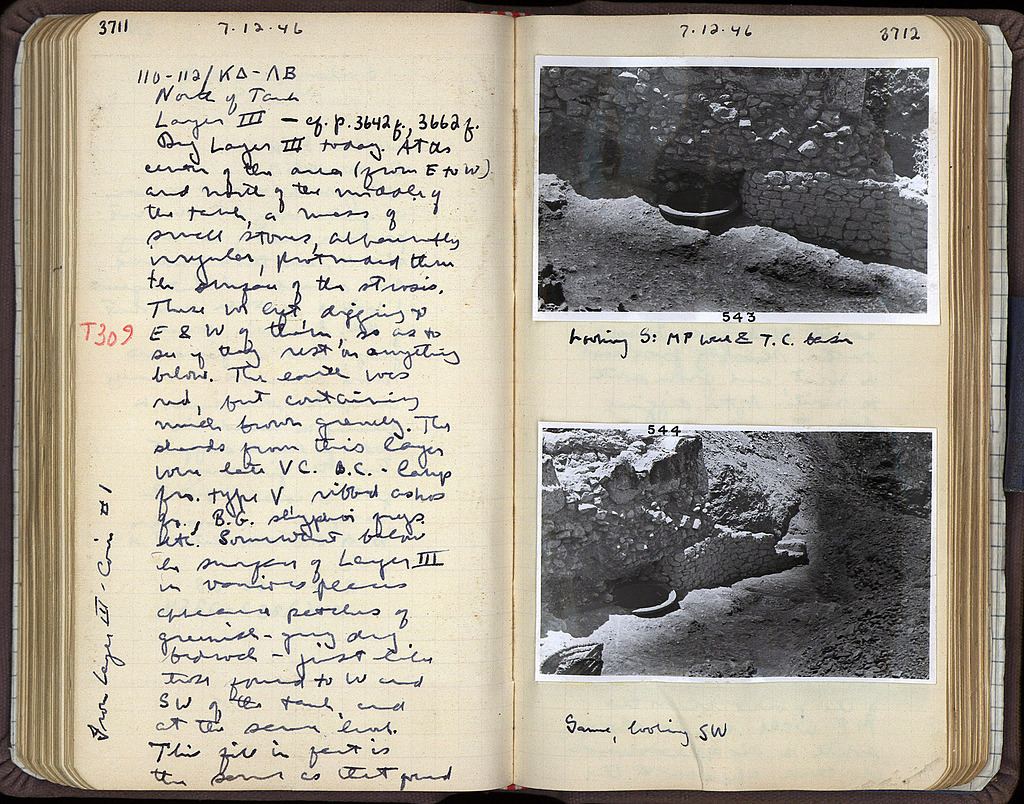 3711
7.12.46
110-112/ΚΔ-ΛΒ
North of Tank
Layer III — cf. p. 3642 f., 3662 f.
Dig Layer III today. At the
center of the area (from E to W)
and north of the middle of
the tank, a mass of
small stones, apparently
irregular, protruded from
the surface of the strosis.
These we left digging to
T309
E & W of them, so as to
see if they rest on anything
below. The earth was
red, but containing
much brown gravelly. The
sherds from this layer
were late V C. B.C. - lamp
frs. type V ribbed askos
fr., B.G. skyphoi frgs.
etc. Somewhat below
the surface of Layer III
in various places
appeared patches of
greenish-grey dry
bedrock - just like
that found to W and
SW of the tank, and
at the same level.
This fill in fact is
the same as that found
From Layer III - Coin #1
7.12.46
3712
543
Looking S: MP wall & T.C. basin
544
Same, looking SW